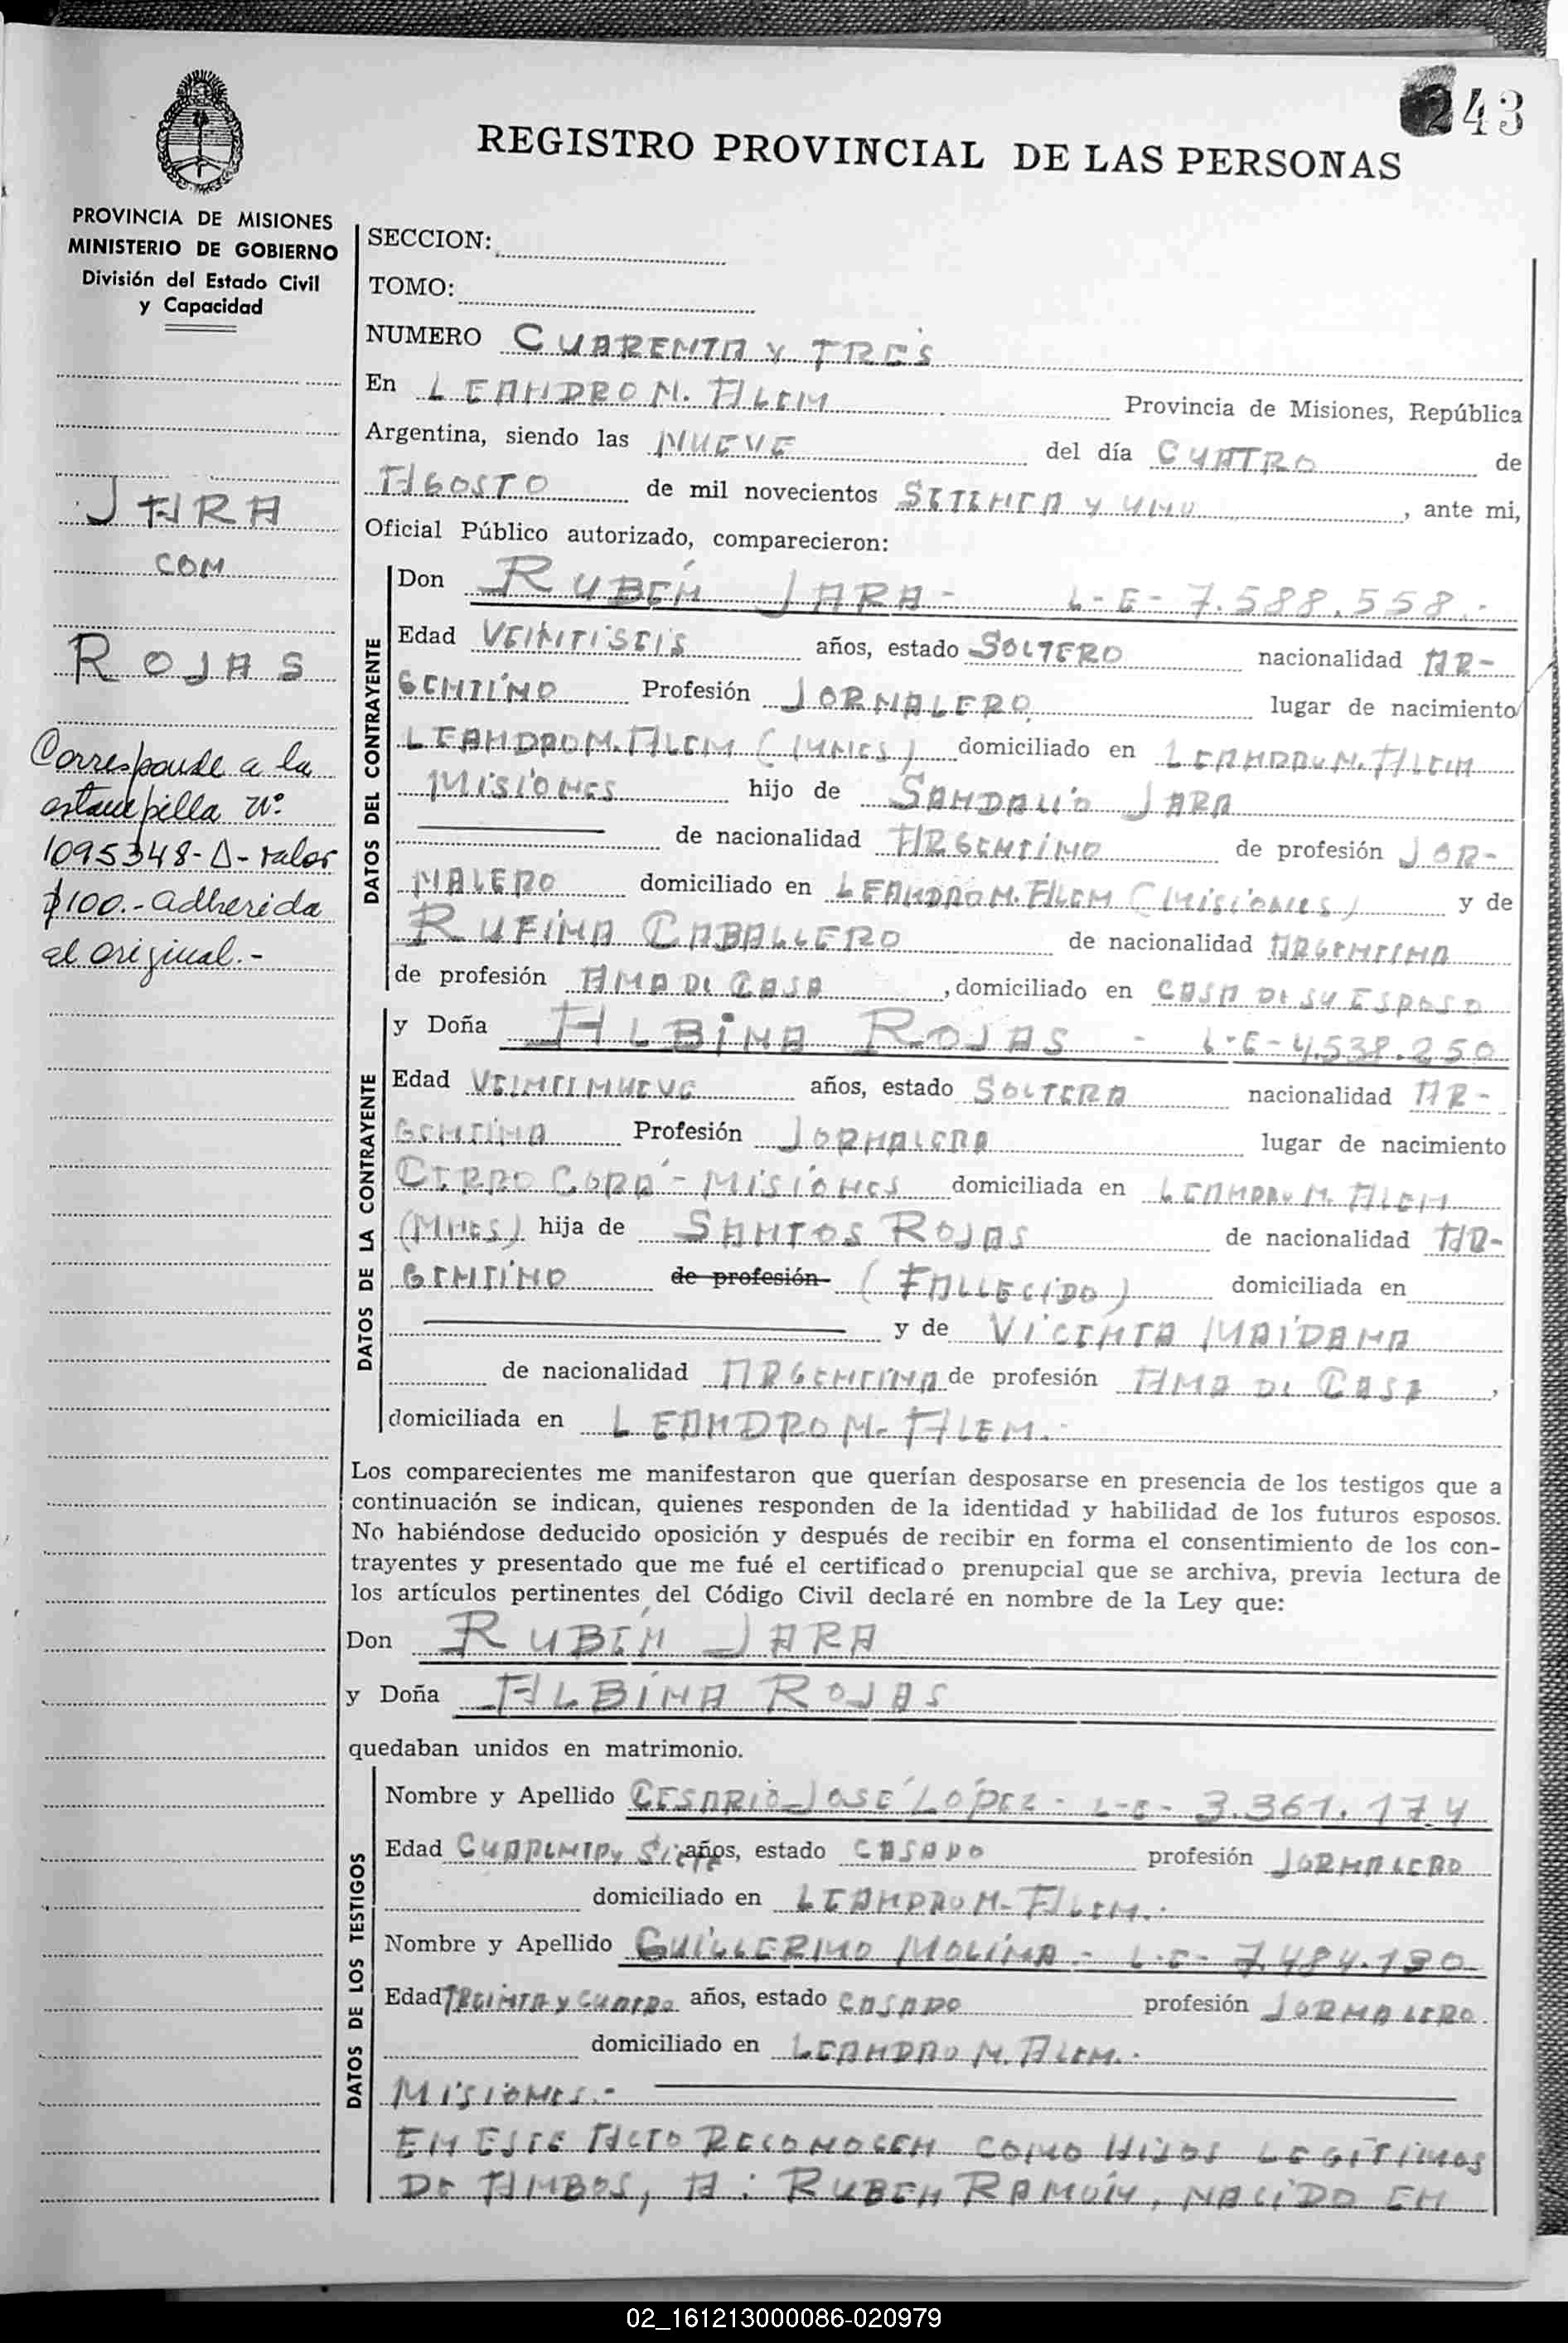 243
REGISTRO PROVINCIAL DE LAS PERSONAS
PROVINCIA DE MISIONES
MINISTERIO DE GOBIERNO
División del Estado Civil
y Capacidad
JARA
CON
ROJAS
Corresponde a la
estampilla Nº
1095348-D-valor
$100.- adherida
al original.-
SECCION:
TOMO:
NUMERO CUARENTA Y TRES
En LEANDRO N. ALEM Provincia de Misiones, República
Argentina, siendo las NUEVE del día CUATRO de
AGOSTO de mil novecientos SETENTA Y UNO, ante mi,
Oficial Público autorizado, comparecieron:
DATOS DEL CONTRAYENTE
Don RUBÉN JARA - L-E- 7.588.558.-
Edad VEINTISEIS años, estado SOLTERO nacionalidad AR-
GENTINO Profesión JORNALERO lugar de nacimiento
LEANDRO N. ALEM (MNES) domiciliado en LEANDRO N. ALEM
MISIONES hijo de SANDALIO JARA
de nacionalidad ARGENTINO de profesión JOR-
NALERO domiciliado en LEANDRO N. ALEM (MISIONES) y de
RUFINA CABALLERO de nacionalidad ARGENTINA
de profesión AMA DE CASA, domiciliado en CASA DE SU ESPOSO
DATOS DE LA CONTRAYENTE
y Doña ALBINA ROJAS - L-E-4.538.250
Edad VEINTINUEVE años, estado SOLTERA nacionalidad AR-
GENTINA Profesión JORNALERA lugar de nacimiento
CERRO CORÁ - MISIONES domiciliada en LEANDRO N. ALEM
(MNES) hija de SANTOS ROJAS de nacionalidad AR-
GENTINO de profesión (FALLECIDO) domiciliada en
y de VICENTA MAIDANA
de nacionalidad ARGENTINA de profesión AMA DE CASA,
domiciliada en LEANDRO N. ALEM.-
Los comparecientes me manifestaron que querían desposarse en presencia de los testigos que a
continuación se indican, quienes responden de la identidad y habilidad de los futuros esposos.
No habiéndose deducido oposición y después de recibir en forma el consentimiento de los con-
trayentes y presentado que me fué el certificado prenupcial que se archiva, previa lectura de
los artículos pertinentes del Código Civil declaré en nombre de la Ley que:
Don RUBÉN JARA
y Doña ALBINA ROJAS
quedaban unidos en matrimonio.
DATOS DE LOS TESTIGOS
Nombre y Apellido CESARIO JOSÉ LÓPEZ - L-E- 3.361.174
Edad CUARENTA y SIETE años, estado CASADO profesión JORNALERO
domiciliado en LEANDRO N. ALEM.-
Nombre y Apellido GUILLERMO MOLINA - L-E- 7.484.130
Edad TREINTA y CUATRO años, estado CASADO profesión JORNALERO.
domiciliado en LEANDRO N. ALEM.-
MISIONES.-
EN ESTE ACTO RECONOCEN COMO HIJOS LEGÍTIMOS
DE AMBOS, A: RUBEN RAMÓN, NACIDO EN
02_161213000086-020979